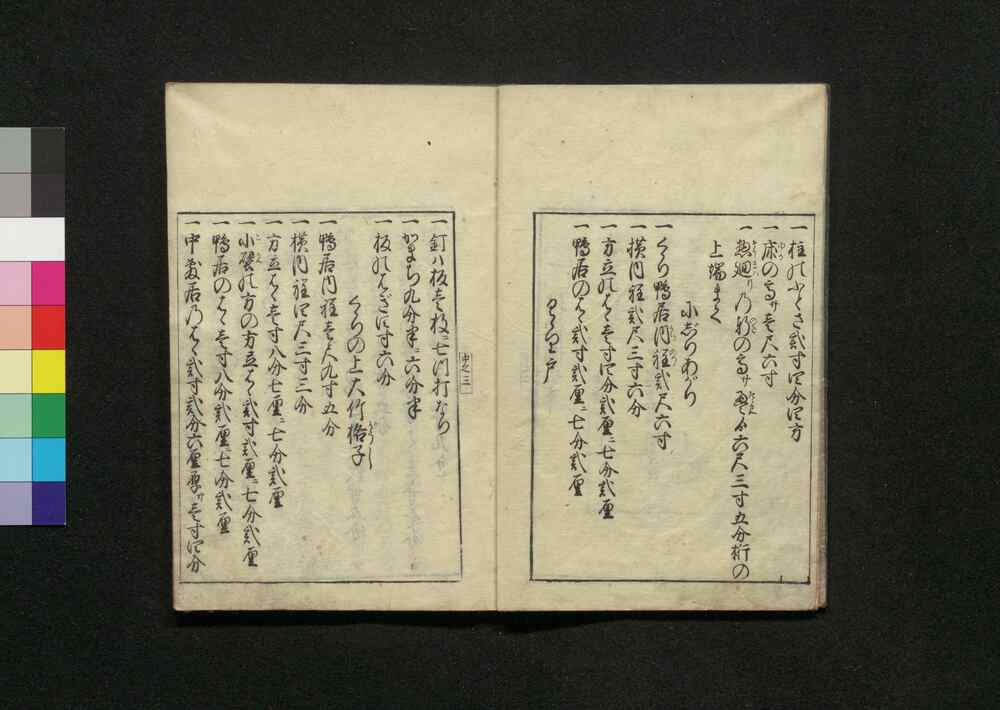 一柱のふとさ弐寸四分四方
一床の高サ壱尺六寸
一惣廻り乃軒の高サ 六尺三寸五分桁の
上端まで
にじりあがり
一くゞり鴨居内程弐尺六寸
一横内程弐尺三寸六分
一方立のはゞ壱寸四分弐厘ニ七分弐厘
一鴨居のはゞ弐寸弐分弐厘ニ七分弐厘
戸
一釘ハ板壱枚ニ七ツ打なり
一かまち九分半ニ六分半
一板のはぎに寸六分
くゞりの上大竹格子
一鴨居内程壱尺九寸五分
一横内程四尺三寸三分
一方立はゞ壱寸八分七厘ニ七分弐厘
一小壁の方の方立はゞ弐寸弐厘ニ七分弐厘
一鴨居のはゞ壱寸八分弐厘ニ七分弐厘
一中敷居乃はゞ弐寸弐分六厘厚サ壱寸四分
中之三